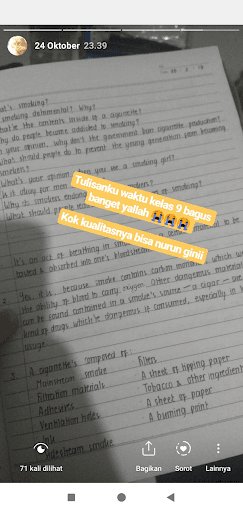 24 Oktober 23.39
at's smoking?
smoking detrimental? Why?
hat're the contents inside of a cigarette?
hy do people become addicted to smoking?
your opinion, why don't the government ban cigarette production?
hat should people do to prevent the young generation from becoming
smokers?
What's your opinion when you see a smoking girl?
Is it okay for men
Why do smokers
What should people
Tulisanku waktu kelas 9 bagus
banget yallah 😭😭😭
Kok kualitasnya bisa nurun ginii
It's an act of breathing in
tasted & absorbed into one's bloodstream
2. Yes, it is, because smoke contains carbon
the ability of blood to carry oxygen. Other dangerous
can be found contained in a smoke's source - a cigar - are
kind of drugs which're dangerous if consumed, especially in
3. A cigarette's composed of:
Mainstream smoke
Filtration materials
Adhesives
Ventilation holes
Ink
Sidestream smoke
Filters
A sheet of tipping paper
Tobacco & other ingredient
A sheet of paper
A burning point
71 kali dilihat
Bagikan
Sorot
Lainnya